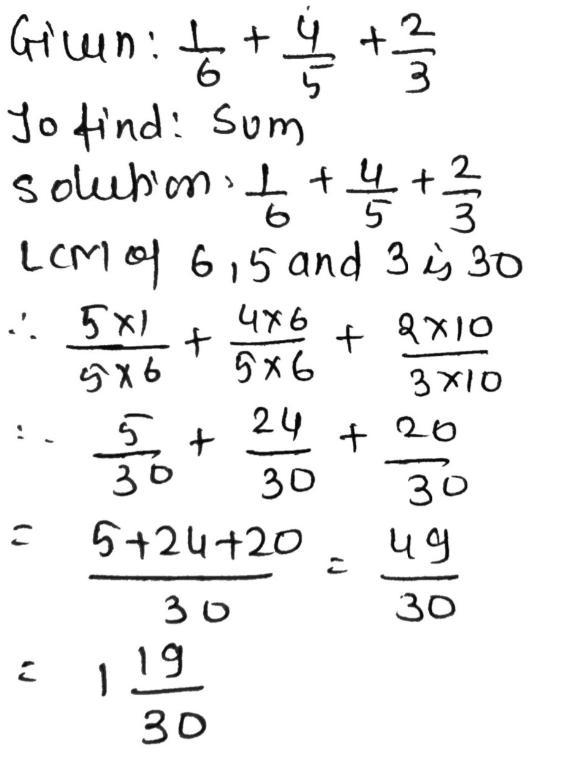 Given: 1/6 + 4/5 + 2/3
To find: Sum
Solution: 1/6 + 4/5 + 2/3
LCM of 6,5 and 3 is 30
∴ 5×1/5×6 + 4×6/5×6 + 2×10/3×10
∴ 5/30 + 24/30 + 20/30
= 5+24+20/30 = 49/30
= 1 19/30